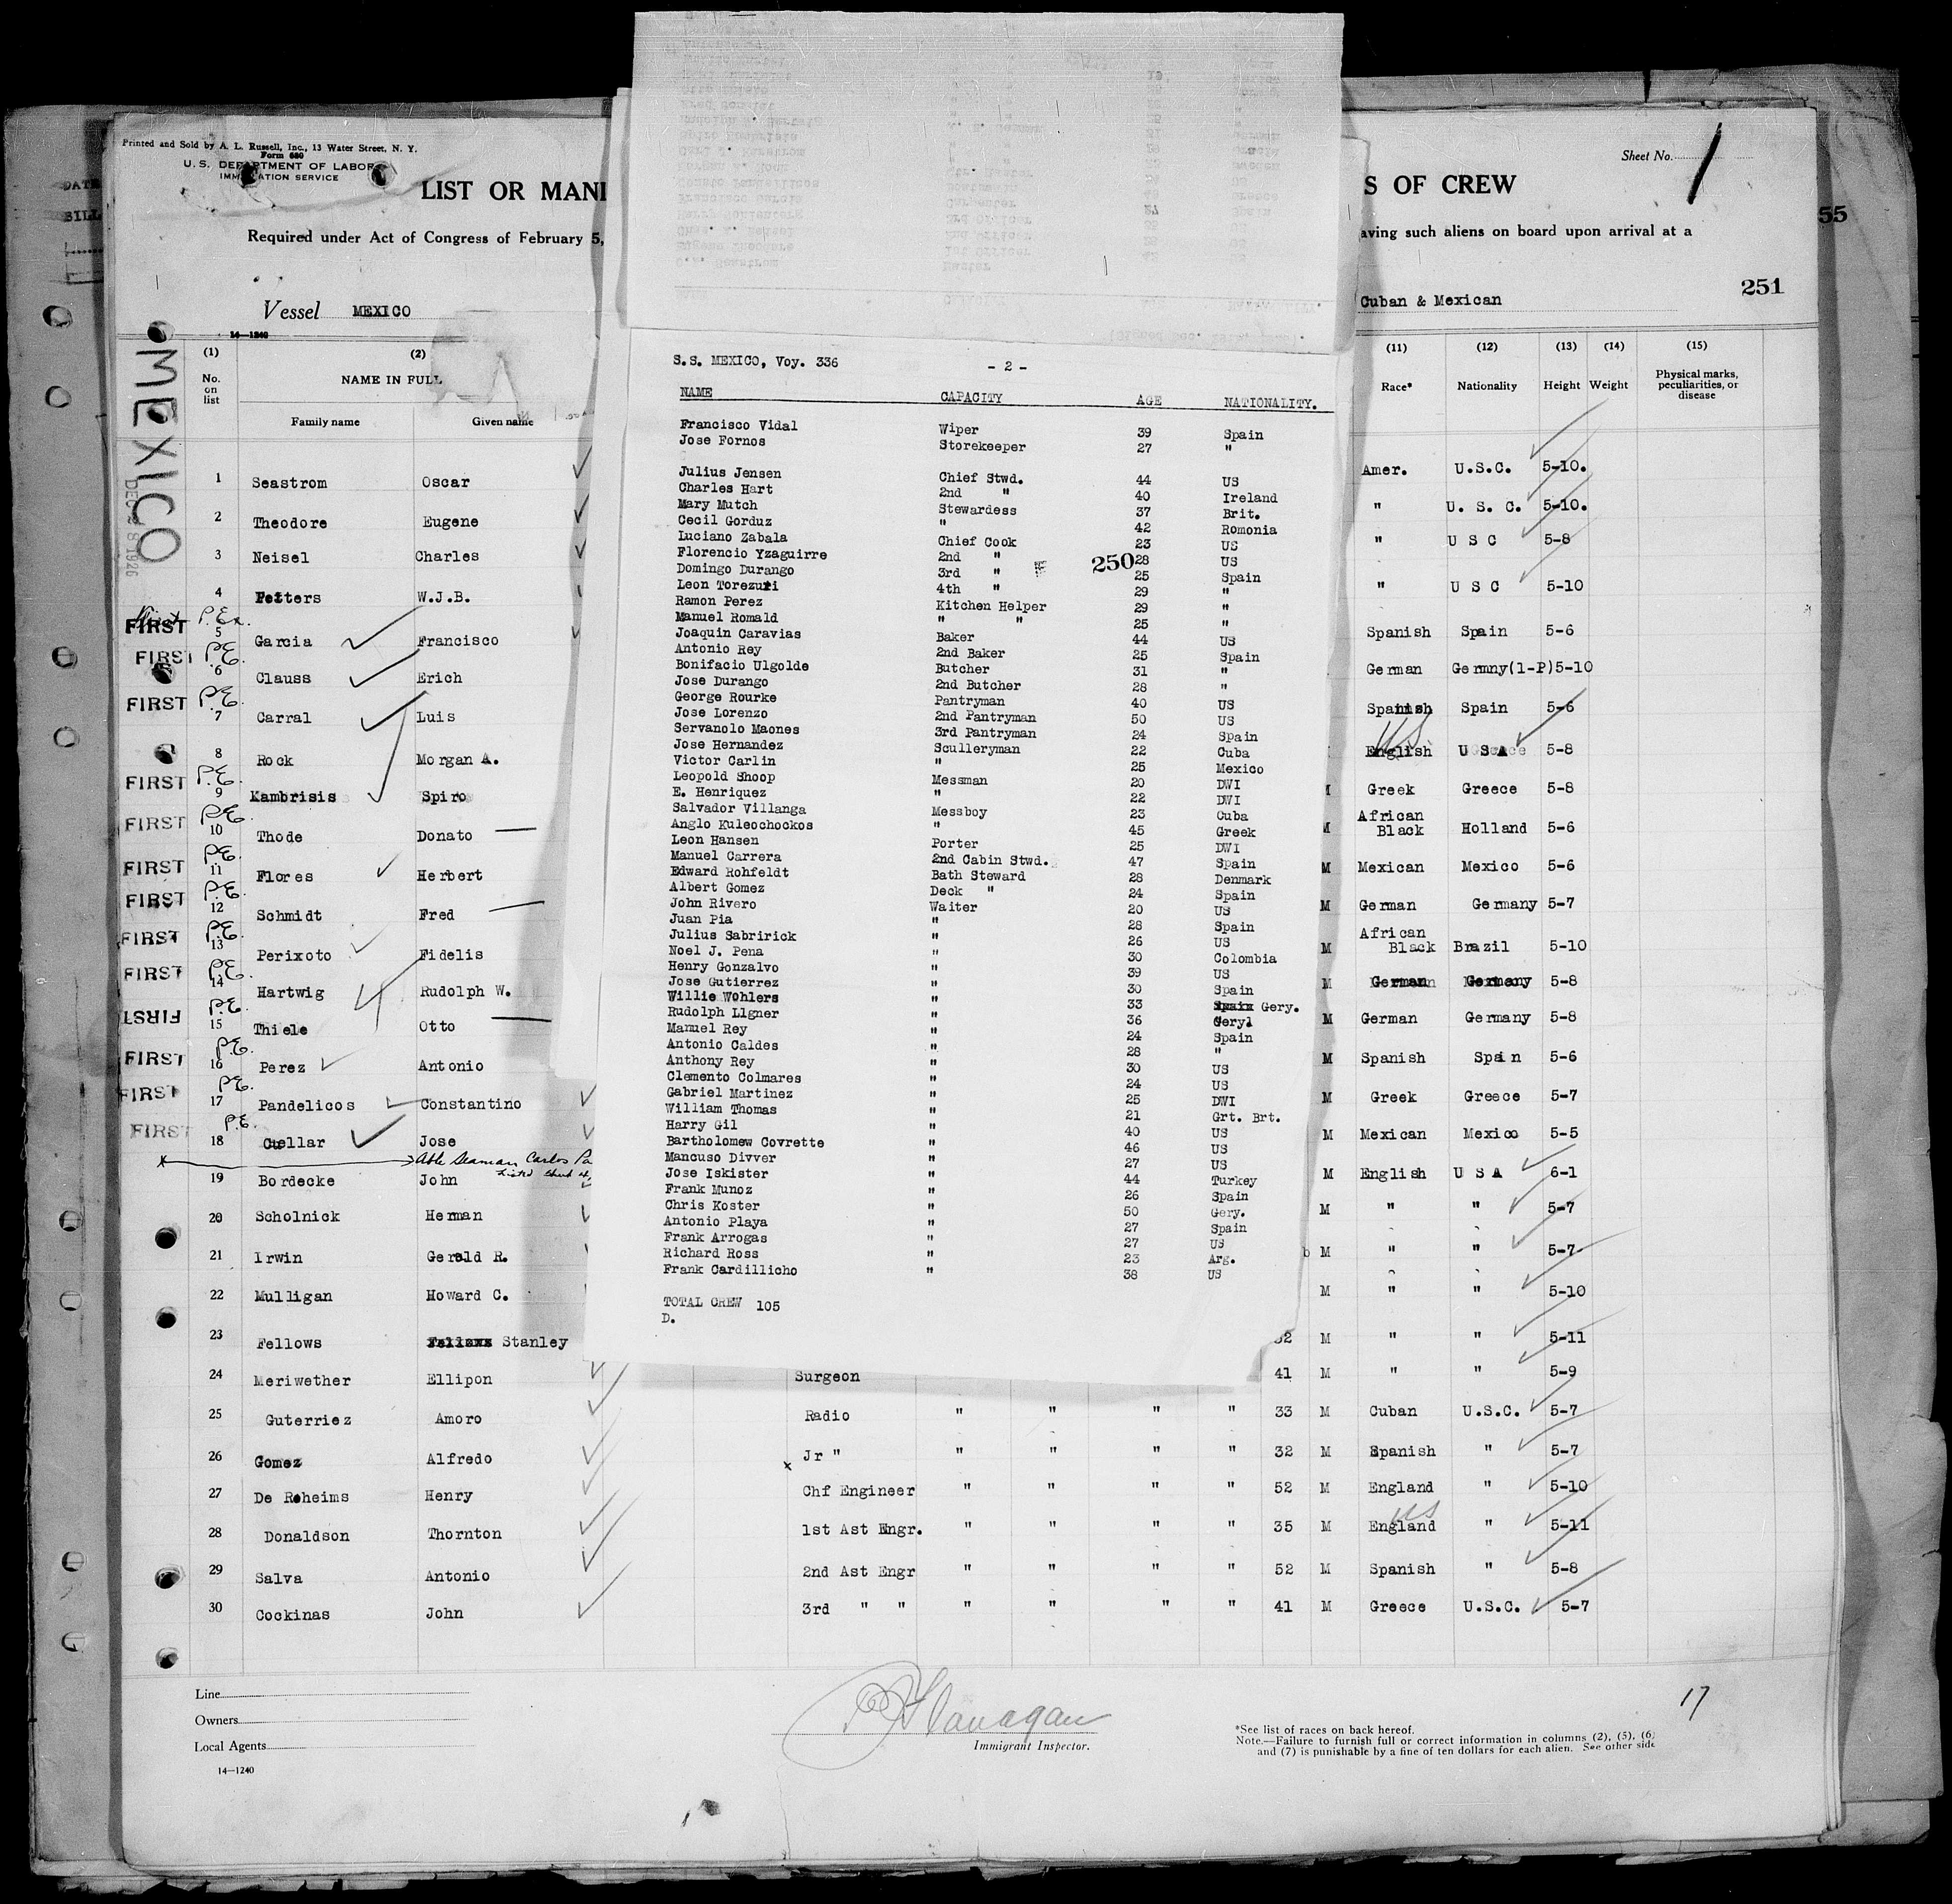 Printed and Sold by A. L. Russell, Inc., 13 Water Street, N. Y.
Form 680
U. S. DEPARTMENT OF LABOR
IMMIGRATION SERVICE
Sheet No. 1
LIST OR MANI
S OF CREW
55
Required under Act of Congress of February 5,
aving such aliens on board upon arrival at a
251
Vessel MEXICO
Cuban & Mexican
14-1240
MEXICO
(1) (2) (11) (12) (13) (14) (15)
No. on list NAME IN FULL Race* Nationality Height Weight Physical marks, peculiarities, or disease
Family name Given name
S.S. MEXICO, Voy. 336 - 2 -
NAME CAPACITY AGE NATIONALITY.
Francisco Vidal Wiper 39 Spain
Jose Fornos Storekeeper 27 "
Julius Jensen Chief Stwd. 44 US
Charles Hart 2nd " 40 Ireland
Mary Mutch Stewardess 37 Brit.
Cecil Gorduz " 42 Romonia
Luciano Zabala Chief Cook 23 US
Florencio Yzaguirre 2nd " 28 US
250
Domingo Durango 3rd " 25 Spain
Leon Torezuri 4th " 29 "
Ramon Perez Kitchen Helper 29 "
Manuel Romald " " 25 "
Joaquin Caravias Baker 44 US
Antonio Rey 2nd Baker 25 Spain
Bonifacio Ulgolde Butcher 31 "
Jose Durango 2nd Butcher 28 "
George Rourke Pantryman 40 US
Jose Lorenzo 2nd Pantryman 50 US
Servanolo Maones 3rd Pantryman 24 Spain
Jose Hernandez Sculleryman 22 Cuba
Victor Carlin " 25 Mexico
Leopold Shoop Messman 20 DWI
E. Henriquez " 22 DWI
Salvador Villanga Messboy 23 Cuba
Anglo Kuleochockos " 45 Greek
Leon Hansen Porter 25 DWI
Manuel Carrera 2nd Cabin Stwd. 47 Spain
Edward Rohfeldt Bath Steward 28 Denmark
Albert Gomez Deck " 24 Spain
John Rivero Waiter 20 US
Juan Pia " 28 Spain
Julius Sabririck " 26 US
Noel J. Pena " 30 Colombia
Henry Gonzalvo " 39 US
Jose Gutierrez " 30 Spain
Willie Wohlers " 33 Spain Gery.
Rudolph Ligner " 36 Gery.
Manuel Rey " 24 Spain
Antonio Caldes " 28 "
Anthony Rey " 30 US
Clemento Colmares " 24 US
Gabriel Martinez " 25 DWI
William Thomas " 21 Grt. Brt.
Harry Gil " 40 US
Bartholomew Covrette " 46 US
Mancuso Divver " 27 US
Jose Iskister " 44 Turkey
Frank Munoz " 26 Spain
Chris Koster " 50 Gery.
Antonio Playa " 27 Spain
Frank Arrogas " 27 US
Richard Ross " 23 Arg.
Frank Cardillicho " 38 US
TOTAL CREW 105
D.
1 Seastrom Oscar Amer. U.S.C. 5-10.
2 Theodore Eugene " U. S. C. 5-10.
3 Neisel Charles " U S C 5-8
4 Petters W.J.B. " U S C 5-10
FIRST P.E. 5 Garcia Francisco Spanish Spain 5-6
FIRST P.E. 6 Clauss Erich German Germny(1-P) 5-10
FIRST P.E. 7 Carral Luis Spanish Spain 5-6
8 Rock Morgan A. English US U S A 5-8
FIRST P.E. 9 Kambrisis Spiro M Greek Greece 5-8
FIRST P.E. 10 Thode Donato M African Black Holland 5-6
FIRST P.E. 11 Flores Herbert M Mexican Mexico 5-6
FIRST P.E. 12 Schmidt Fred M German Germany 5-7
FIRST P.E. 13 Perixoto Fidelis M African Black Brazil 5-10
FIRST P.E. 14 Hartwig Rudolph W. M German Germany 5-8
FIRST P.E. 15 Thiele Otto M German Germany 5-8
FIRST P.E. 16 Perez Antonio M Spanish Spain 5-6
FIRST P.E. 17 Pandelicos Constantino M Greek Greece 5-7
FIRST P.E. 18 Cuellar Jose M Mexican Mexico 5-5
x Able Seaman Carlos Pa
Listed Sheet
19 Bordecke John M English U S A 6-1
20 Scholnick Herman M " " 5-7
21 Irwin Gerald R. M " " 5-7
22 Mulligan Howard C. M " " 5-10
23 Fellows Stanley 32 M " " 5-11
24 Meriwether Ellipon Surgeon 41 M " " 5-9
25 Guterriez Amoro Radio " " " " 33 M Cuban U.S.C. 5-7
26 Gomez Alfredo x Jr " " " " " 32 M Spanish " 5-7
27 De Roheims Henry Chf Engineer " " " " 52 M England " 5-10
28 Donaldson Thornton 1st Ast Engr. " " " " 35 M England US " 5-11
29 Salva Antonio 2nd Ast Engr " " " " 52 M Spanish " 5-8
30 Cockinas John 3rd " " " " " " 41 M Greece U.S.C. 5-7
Line
Owners
Local Agents
14-1240
Flanagan
Immigrant Inspector.
17
*See list of races on back hereof.
Note.—Failure to furnish full or correct information in columns (2), (5), (6)
and (7) is punishable by a fine of ten dollars for each alien. See other side